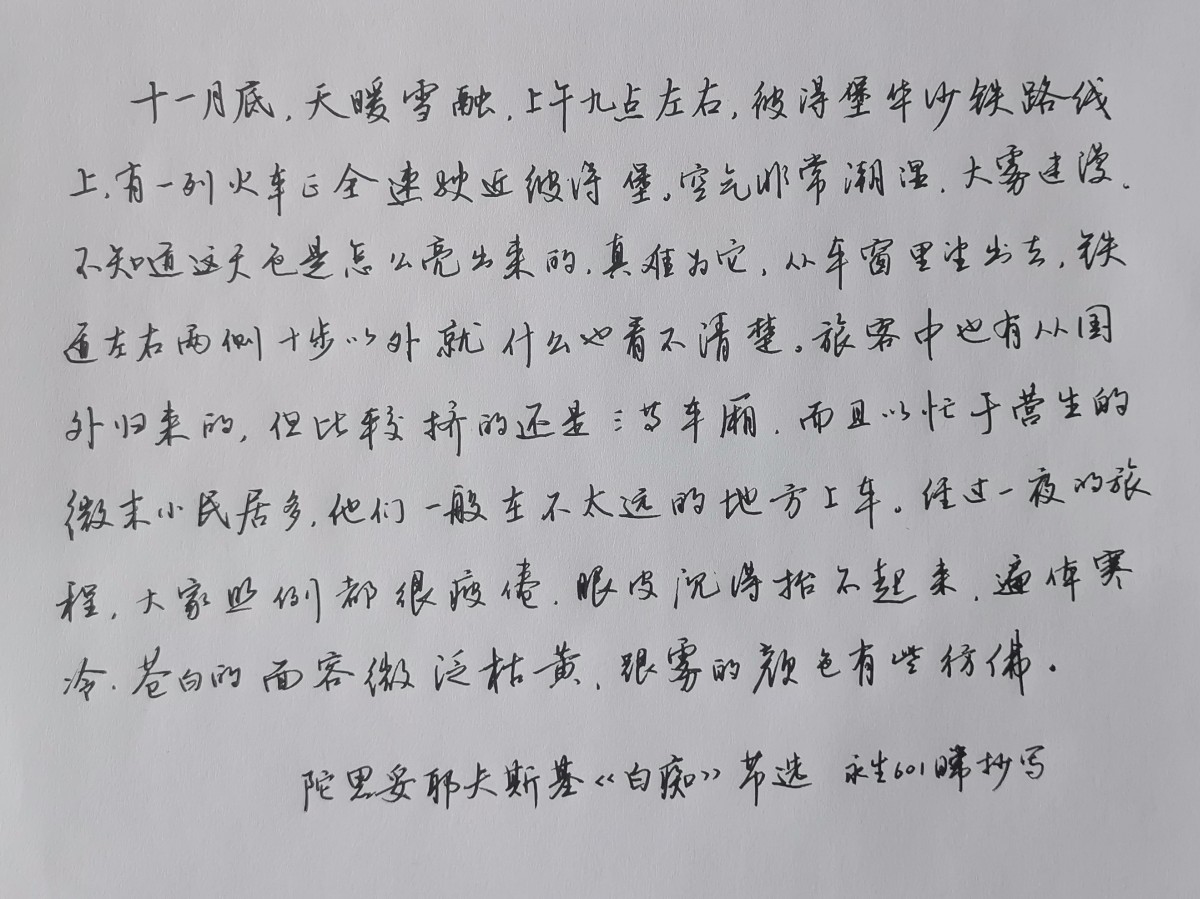 十一月底,天暖雪融,上午九点左右,彼得堡华沙铁路线
上,有一列火车正全速驶近彼得堡。空气非常潮湿,大雾迷漫,
不知道这天色是怎么亮出来的,真难为它,从车窗里望出去,铁
道左右两侧十步以外就什么也看不清楚。旅客中也有从国
外归来的,但比较挤的还是三等车厢,而且以忙于营生的
微末小民居多,他们一般在不太远的地方上车。经过一夜的旅
程,大家照例都很疲倦,眼皮沉得抬不起来,遍体寒
冷,苍白的面容微泛枯黄,跟雾的颜色有些仿佛。
陀思妥耶夫斯基《白痴》节选 永生601 抄写